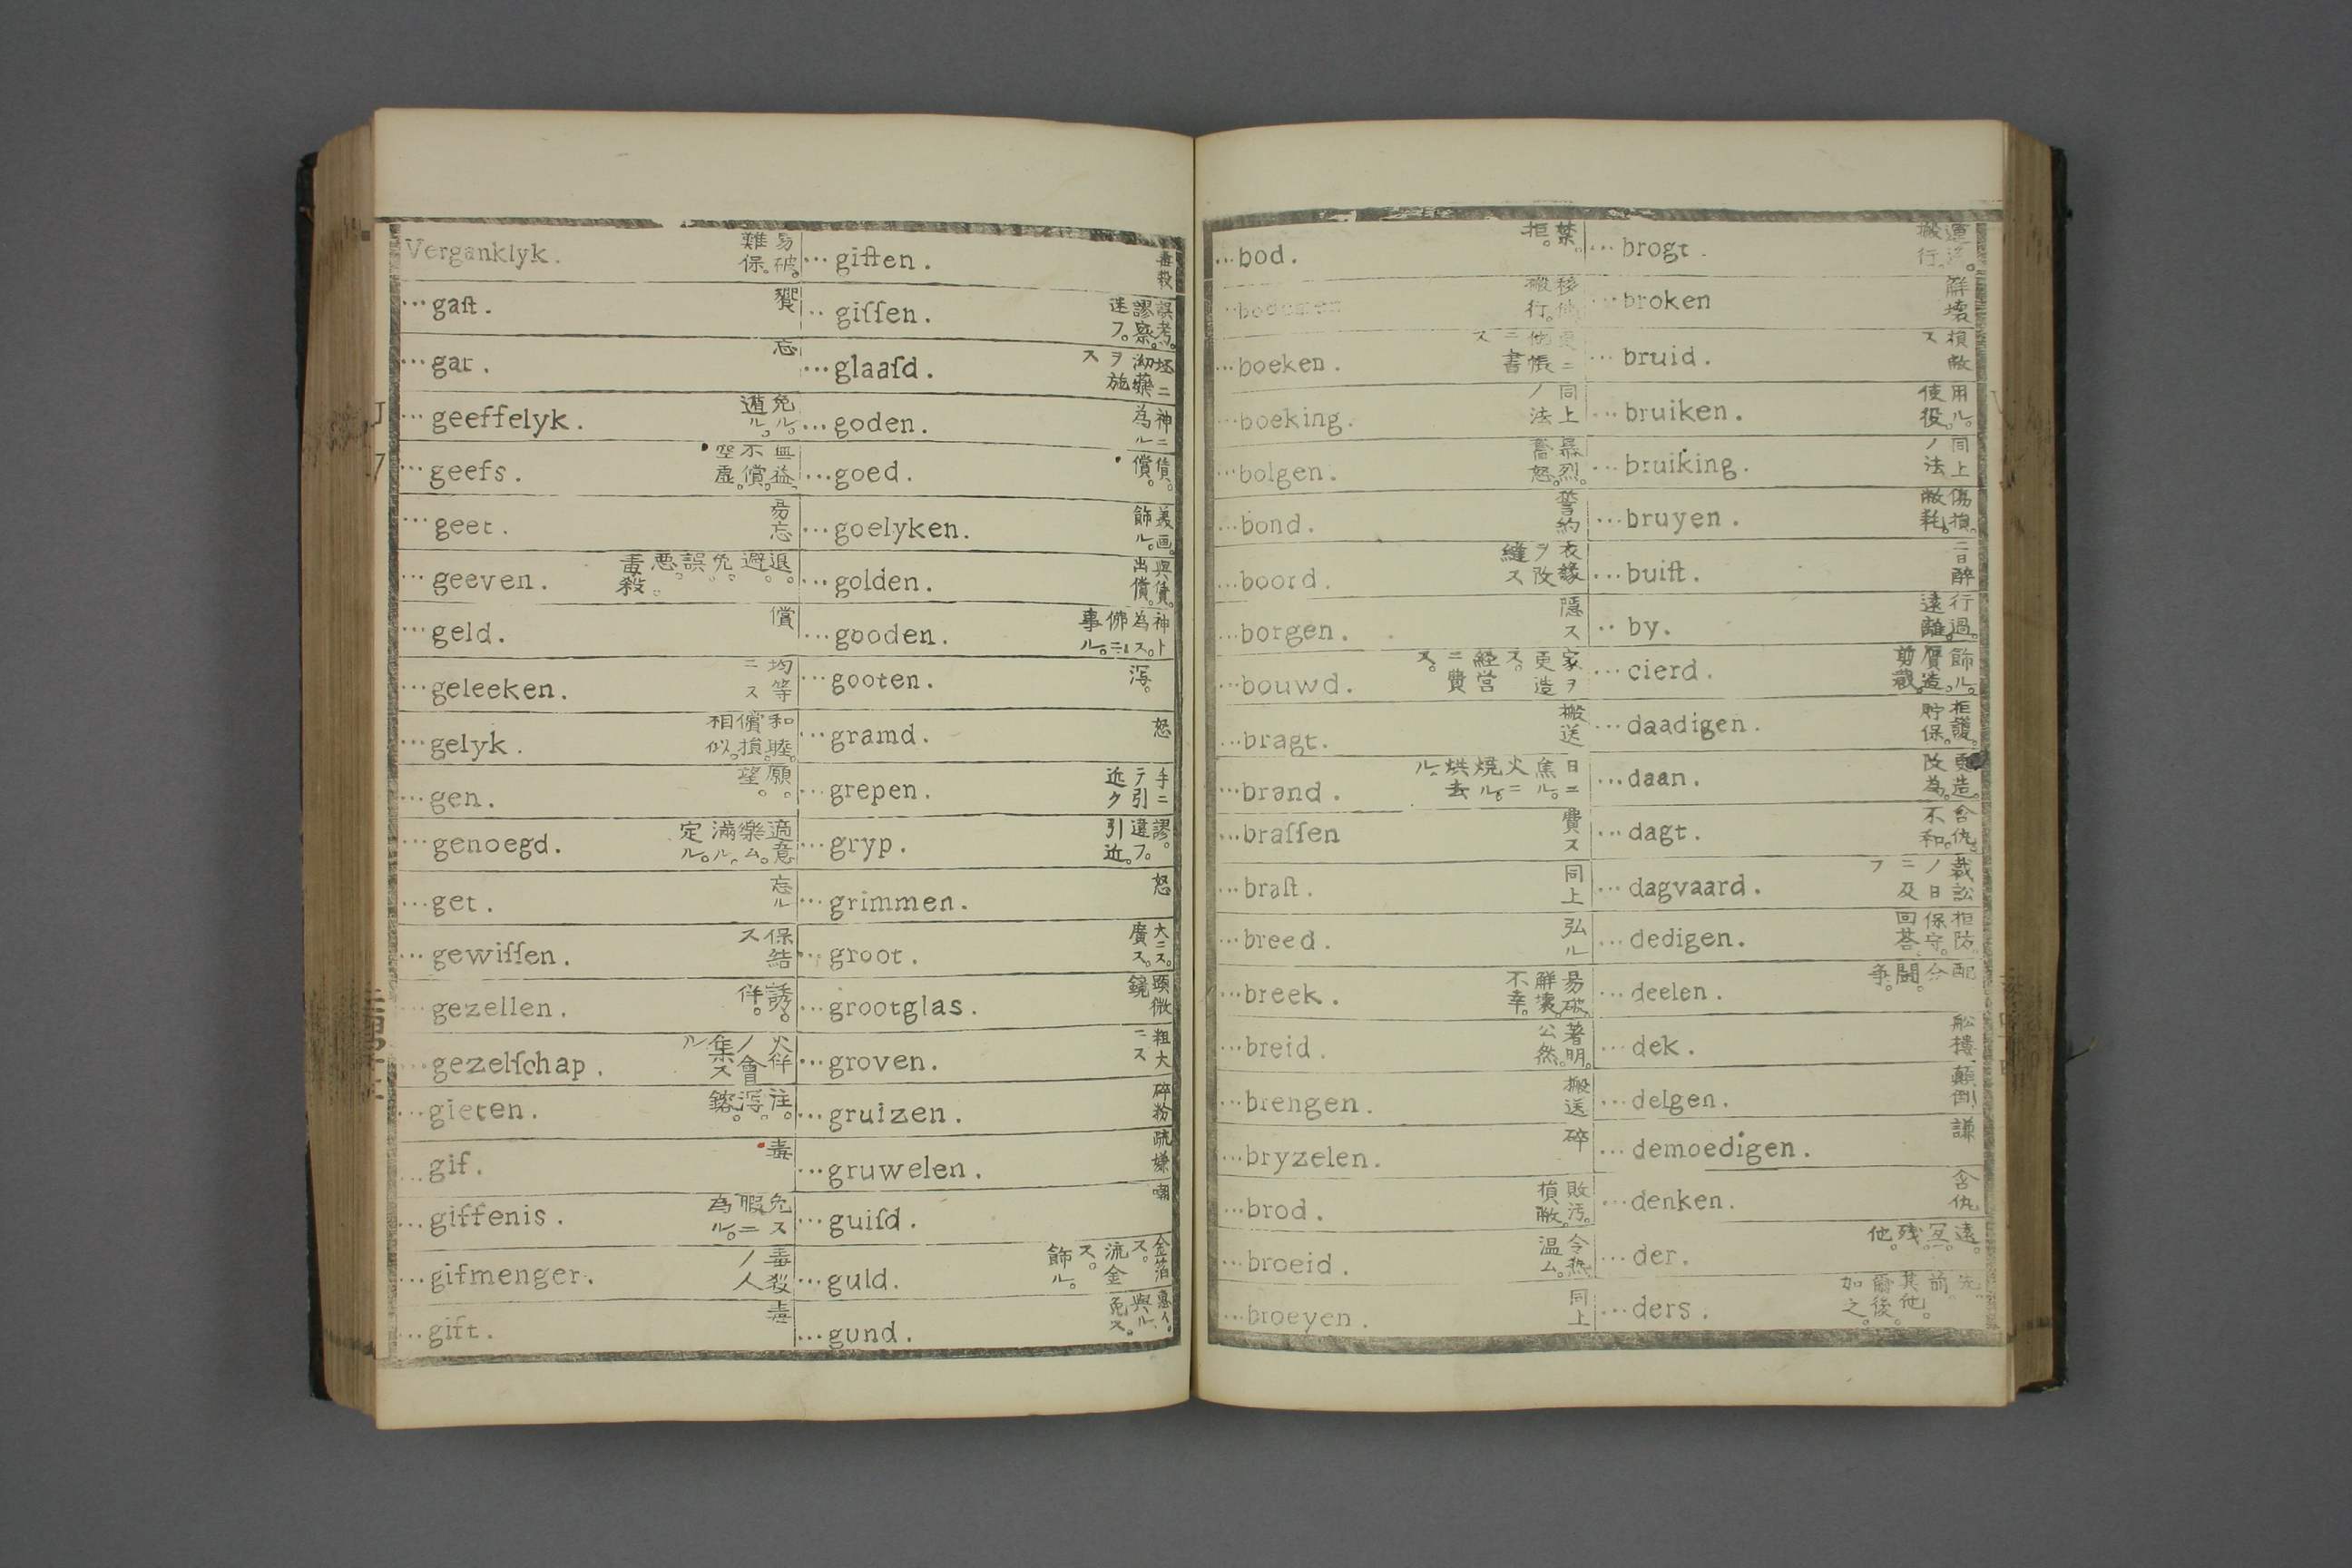 Verganklyk. 易破。難保。
...gaſt. 饗
...gar. 忘
...geeffelyk. 免ル。遁ル。
...geefs. 無益、不償。空虚。
...geet. 易忘
...geeven. 退。避。免。誤。悪。毒殺。
...geld. 償
...geleeken. 均等ニス
...gelyk. 和睦。償損。相似。
...gen. 願。望。
...genoegd. 適意。樂ム。滿ル、定ル。
...get. 忘ル
...gewiſſen. 保結ス
...gezellen. 誘。伴。
...gezelſchap. 火伴ノ會集スル
...gieten. 注。瀉。鎔。
...gif. 毒
...giffenis. 免ス 暇ニ為ル。
...gifmenger. 毒殺ノ人
...gift. 毒
...giften. 毒殺
...giſſen. 誤考。謬察。迷フ。
...glaaſd. 坯ニ沏藥ヲ施ス
...goden. 神ニ為ル
...goed. 債。償。
...goelyken. 美画。飾ル。
...golden. 與債。出償。
...gooden. 神ト為ス。佛ニ事ル。
...gooten. 瀉。
...gramd. 怒
...grepen. 手ニテ引近ク
...gryp. 謬。違フ。引近。
...grimmen. 怒
...groot. 大ニス。廣ス。
...grootglas. 顕微鏡
...groven. 粗大ニス
...gruizen. 碎粉
...gruwelen. 疏嫌
...guiſd. 嘲
...guld. 金箔ス。流金ス。飾ル。
...gund. 惠ム。與ル。免ス。
...bod. 禁。拒。
...bodemen 移他。搬行。
...boeken. 更ニ他帳ニ書ス
...boeking. 同上ノ法
...bolgen. 暴烈。奮怒。
...bond. 誓約
...boord. 衣緣ヲ改縫ス
...borgen. 隱ス
...bouwd. 家ヲ更造ス。経営ニ費ス。
...bragt. 搬送
...brand. 日ニ焦ル。火ニ焼ル。烘去ル。
...braſſen 費ス
...braſt. 同上
...breed. 弘ル
...breek. 易破。解壞。不幸。
...breid. 著明。公然。
...brengen. 搬送
...bryzelen. 碎
...brod. 敗汚。損敝。
...broeid. 令熱。温ム。
...broeyen. 同上
...brogt. 運送。搬行。
...broken 解壞
...bruid. 損敝ス
...bruiken. 用ル。使役。
...bruiking. 同上ノ法
...bruyen. 傷損。敝耗。
...buiſt. 二日醉
...by. 行過。遠離。
...cierd. 飾ル。贋造。剪裁。
...daadigen. 拒護。貯保。
...daan. 更造。改為。
...dagt. 含仇。不和。
...dagvaard. 裁訟ノ日ニ及フ
...dedigen. 拒防。保守。回荅
...deelen. 配分。鬪。争。
...dek. 舩樓
...delgen. 顛倒
...demoedigen. 謙
...denken. 含仇
...der. 遠。冥。残。他。
...ders. 先。前。其他。爾後。加之。